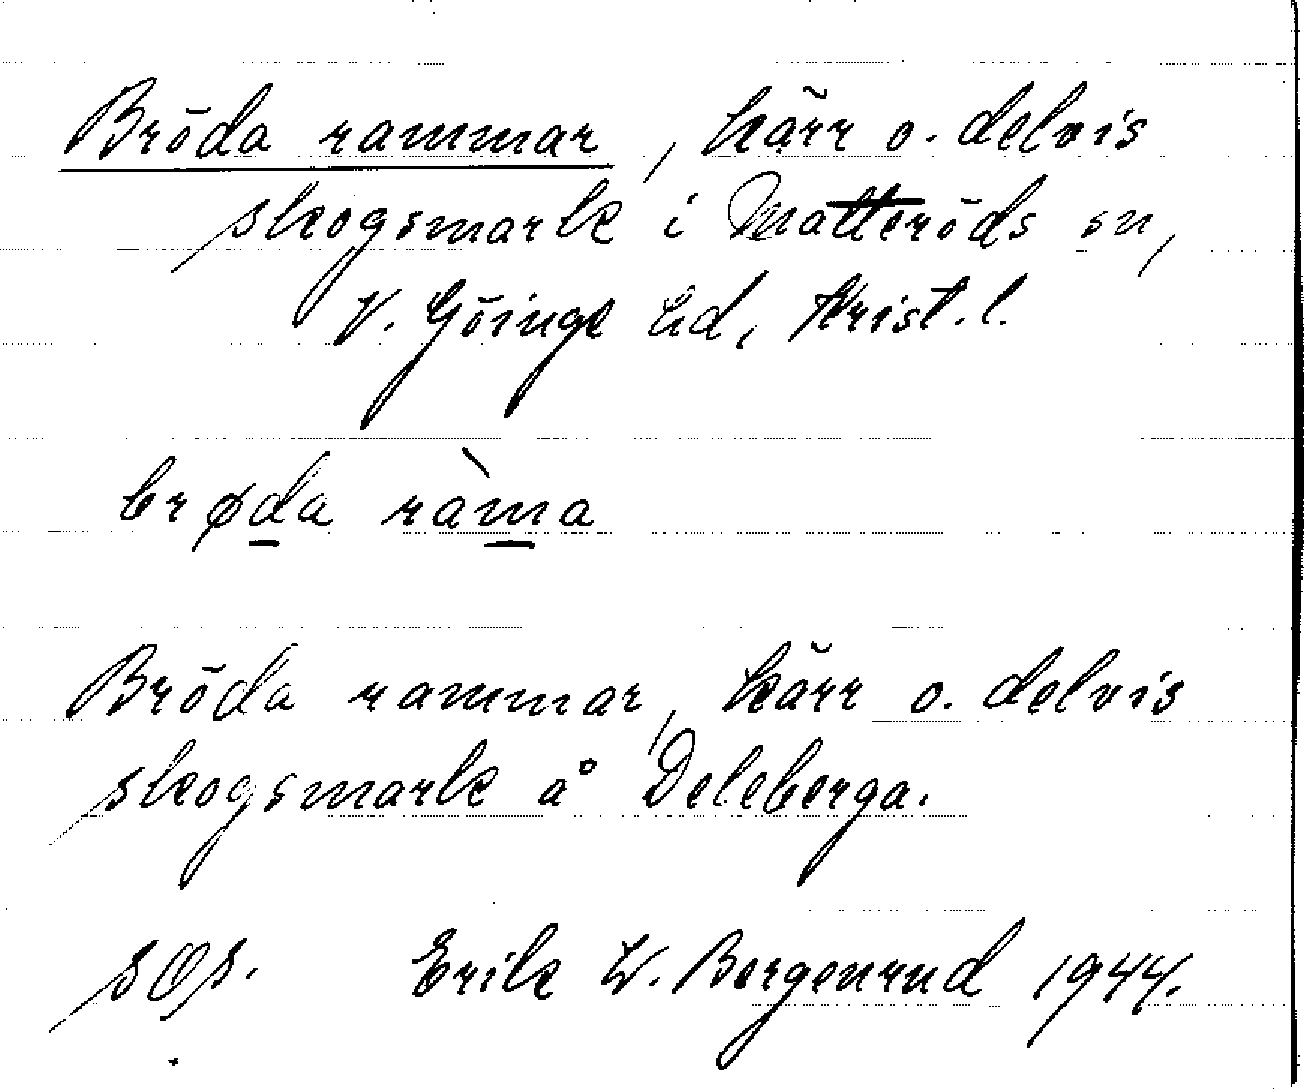 Bröda rammar, kärr o. delvis
skogsmark i Matteröds sn,
V. Göinge hd, Krist. l.
brøda ràma
Bröda rammar, kärr o. delvis
skogsmark å Deleberga.
Erik W. Bergenrud 1944.